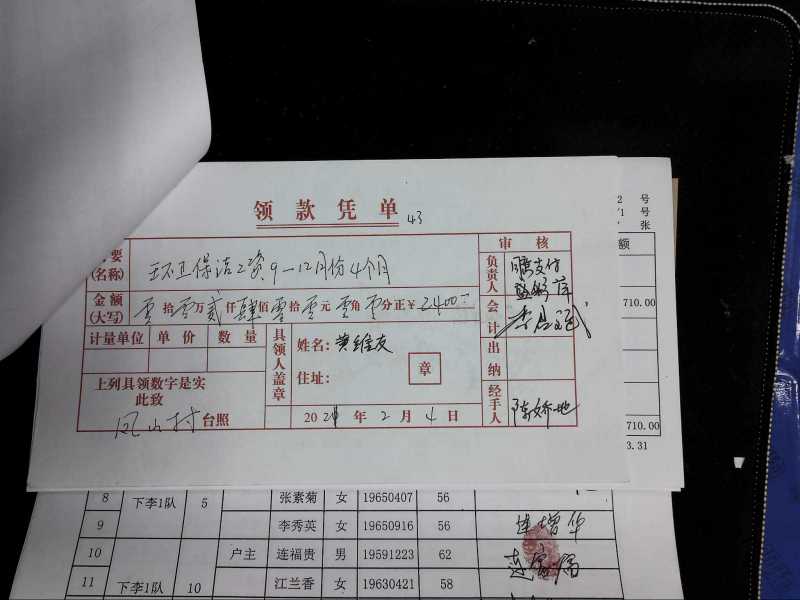 领款凭单 43
2 号
/1 号
张
审核
要
(名称)
环卫保洁工资9—12月份4个月
负责人
同意支付
额
金额
(大写)
零拾零万贰仟肆佰零拾零元零角零分正¥2400
710.00
会计
计量单位 单价 数量
具领人盖章
姓名:黄维友
住址:
章
出纳
上列具领数字是实
此致
凤山村台照
2021年2月4日
经手人
710.00
3.31
8 下李1队 5 张素菊 女 19650407 56
9 李秀英 女 19650916 56 连增华
10 户主 连福贵 男 19591223 62
11 下李1队 10 江兰香 女 19630421 58